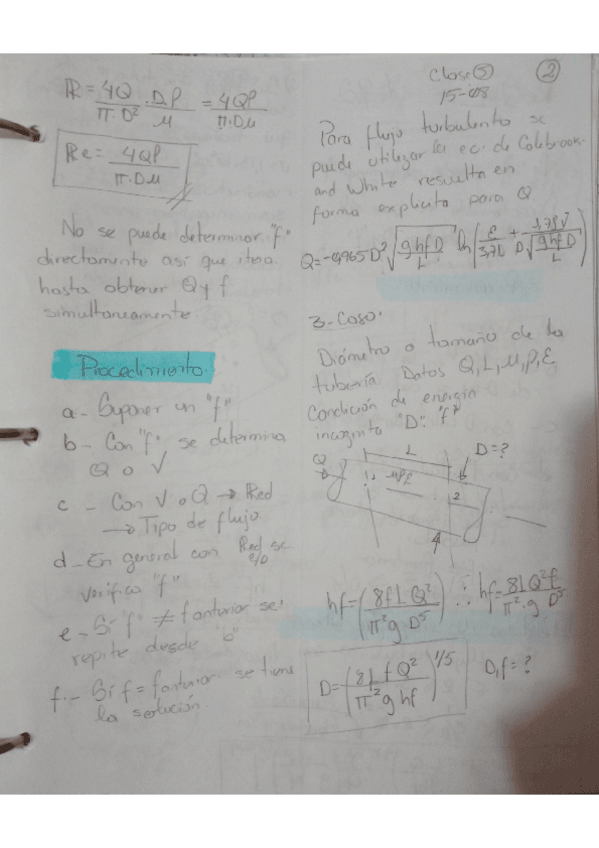 R = 4Q/(π·D²) · Dρ/μ = 4Qρ/(π·Dμ)
Re = 4Qρ/(π·Dμ)
No se puede determinar "f"
directamente así que itera
hasta obtener Q y f
simultaneamente
Procedimiento.
a- Suponer un "f"
b- Con "f" se determina
Q o V
c - Con V o Q → Red
→ Tipo de flujo.
d- En general con Red se
e/D
verifica "f"
e- Si "f" ≠ f anterior se
repite desde "b"
f.- Si f = f anterior se tiene
la solución.
Clase ⑤ ②
15-08
Para flujo turbulento se
puede utilizar la ec. de Colebrook
and White resuelta en
forma explicita para Q
Q = -0,965 D² √(g hf D/L) ln(ε/3,7 + 1,78 V/(D √(g hf D/L)))
3-Caso:
Diámetro o tamaño de la
tubería Datos Q, L, μ, ρ, ε,
Condición de energía
incognita "D": "f"
L
D=?
Q
μρε
2
hf = (8fLQ²/(π²g D⁵)) ∴ hf = 8LQ²f/(π²·g D⁵)
D = (8L f Q²/(π² g hf))^1/5 D, f = ?